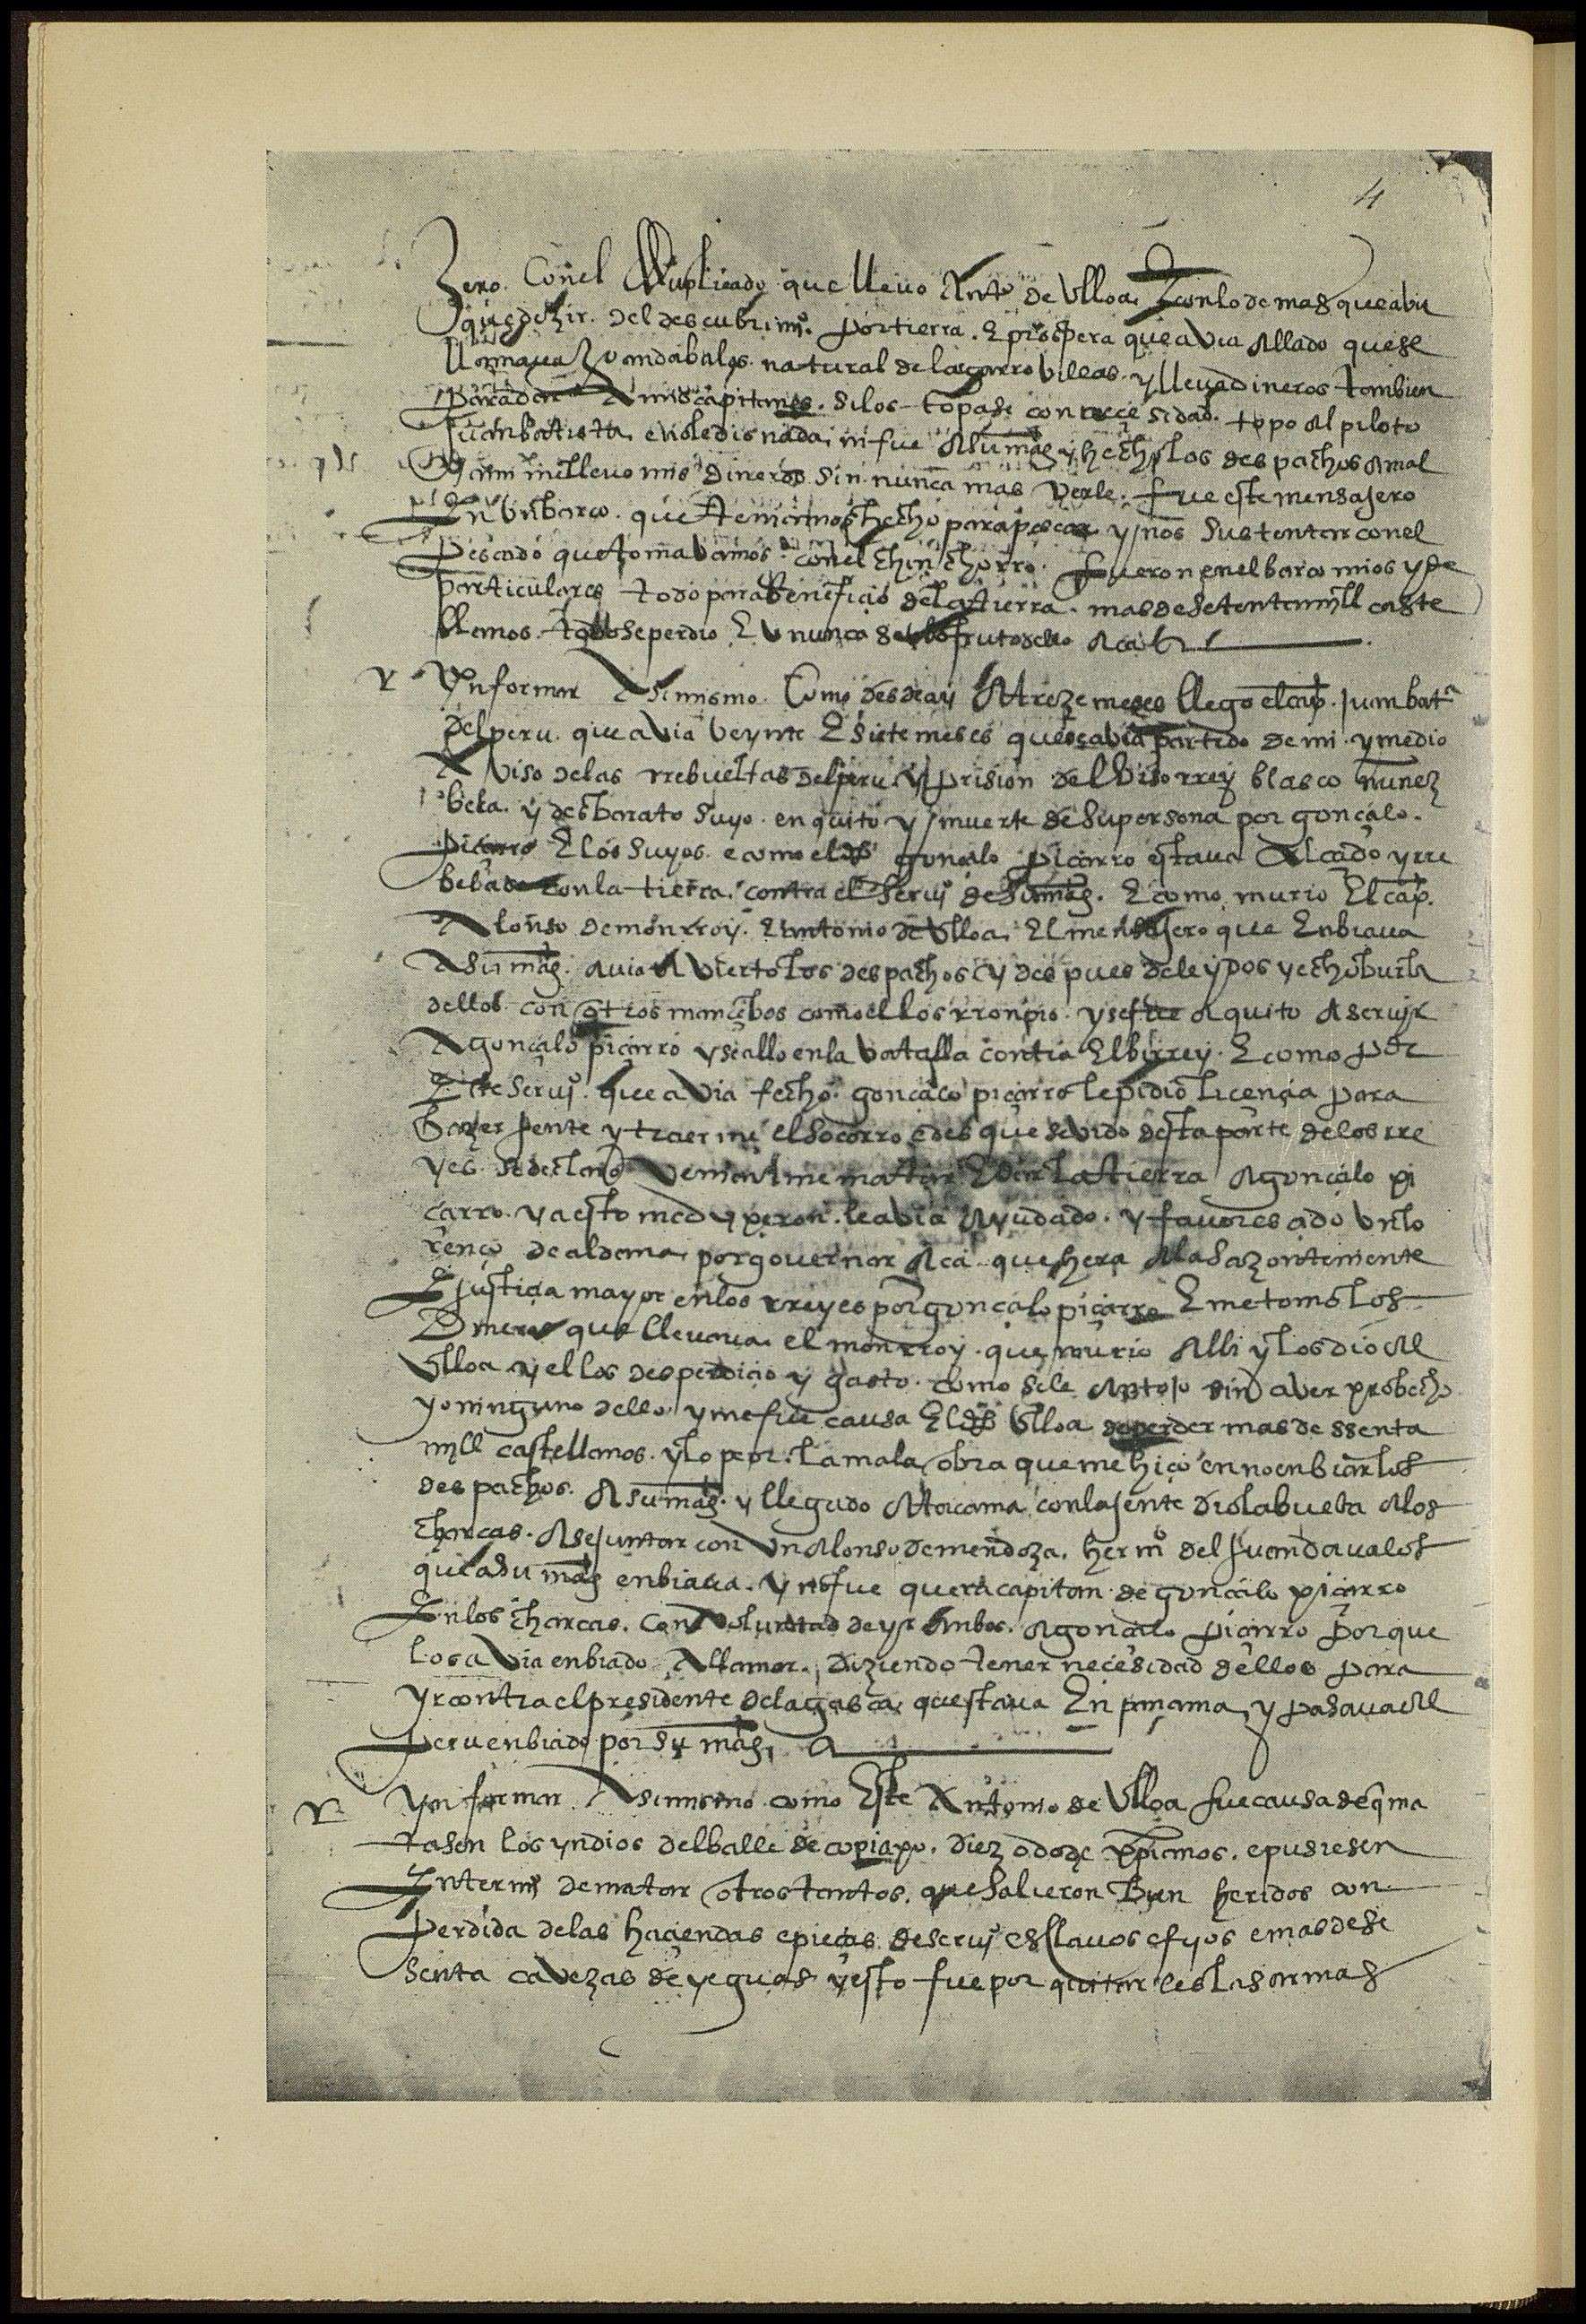 4
gero. Con el Duplicado que lleuo Anto de Ulloa. E con lo demas que avia
que dezir. del descubrimio. por tierra. E prospera que avia allado que se
llamaua Juan dabalos. natural de las garrobillas. y lleuo dineros tambien
para dar A mis capitanes. si los topase con neçesidad. topo al piloto
Juan batista e no le dio nada ni fue a su mag. y hecho los despachos a mal
ny a mi me lleuo mis dineros sin nunca mas verle. fue este mensajero
En un barco. que teniamos hecho para pescar y nos sustentar con el
pescado que tomavamos con el chinchorro. fueron en el barco mios y de
particulares todo para benefiçio de la tierra. mas de setenta mill caste
llanos. todo se perdio E nunca se vio fruto dello aca
Ynformar Asimismo. Como desde ay A treze meses llego el cap. juan bata
del peru. que avia veynte E siete meses que se avia partido de mi. y me dio
Aviso de las rrebueltas del peru y prision del visorrey blasco nunez
bela. y desbarato suyo. en quito y muerte de su persona por gonçalo.
piçarro E los suyos. e como el dho gonçalo piçarro estaua Alçado y rre
belado con la tierra. contra el serui de su mag. E como murio El cap.
Alonso de monrroy. E antonio de Ulloa. El mensajero que Enbiaua
A su mag. avia Avierto los despachos y despues de leydos y echo burla
dellos con otros mançebos como el los rronpio. y se fue A quito A seruir
A gonçalo piçarro y se allo en la vatalla contra El birrey. E como por
Este serui. que avia fecho. gonçalo piçarro le pidio liçençia para
hazer jente y traerme el socorro e des que se vido desta parte de los rre
yes. se declaro venia A me matar E dar la tierra A gonçalo pi
çarro. y a esto me dixeron. le avia Ayudado. y favoresçido un lo
renço de aldana. por gouernar Aca. que hera A la sazon teniente
E justiçia mayor en los rreyes por gonçalo piçarro E me tomo los
Dineros que lleuaua. el monrroy. que murio Alli y los dio Al
Ulloa y el los desperdiçio y gasto. como se le Antojo sin aver probecho
yo ninguno dello. y me fue causa El dho Ulloa de perder mas de ssenta
mill castellanos. y lo peor. la mala obra que me hiço en no enbiar los
despachos. A su mag. y llegado Atacama con la jente dio la buelta A los
charcas. A se juntar con un Alonso de mendoza. hermo del juan daualos
que a su mag enbiaua. y no fue que era capitan de gonçalo piçarro
En los charcas. con voluntad de yr Ambos. A gonçalo piçarro porque
los avia enbiado A llamar. diziendo tener neçesidad dellos para
yr contra el presidente de la gasca. questaua En panama. y pasaua Al
peru enbiado por su mag.
Ynformar Asimismo como Este Antonio de Ulloa fue causa de q ma
tasen los yndios del balle de copiapo. diez o doze xpianos. e pusiesen
En termi de matar otros tantos. que salieron bien heridos con
perdida de las haçiendas e pieças de serui esclauos e fijos e mas de se
senta cavezas de yeguas y esto fue por quitarles las armas